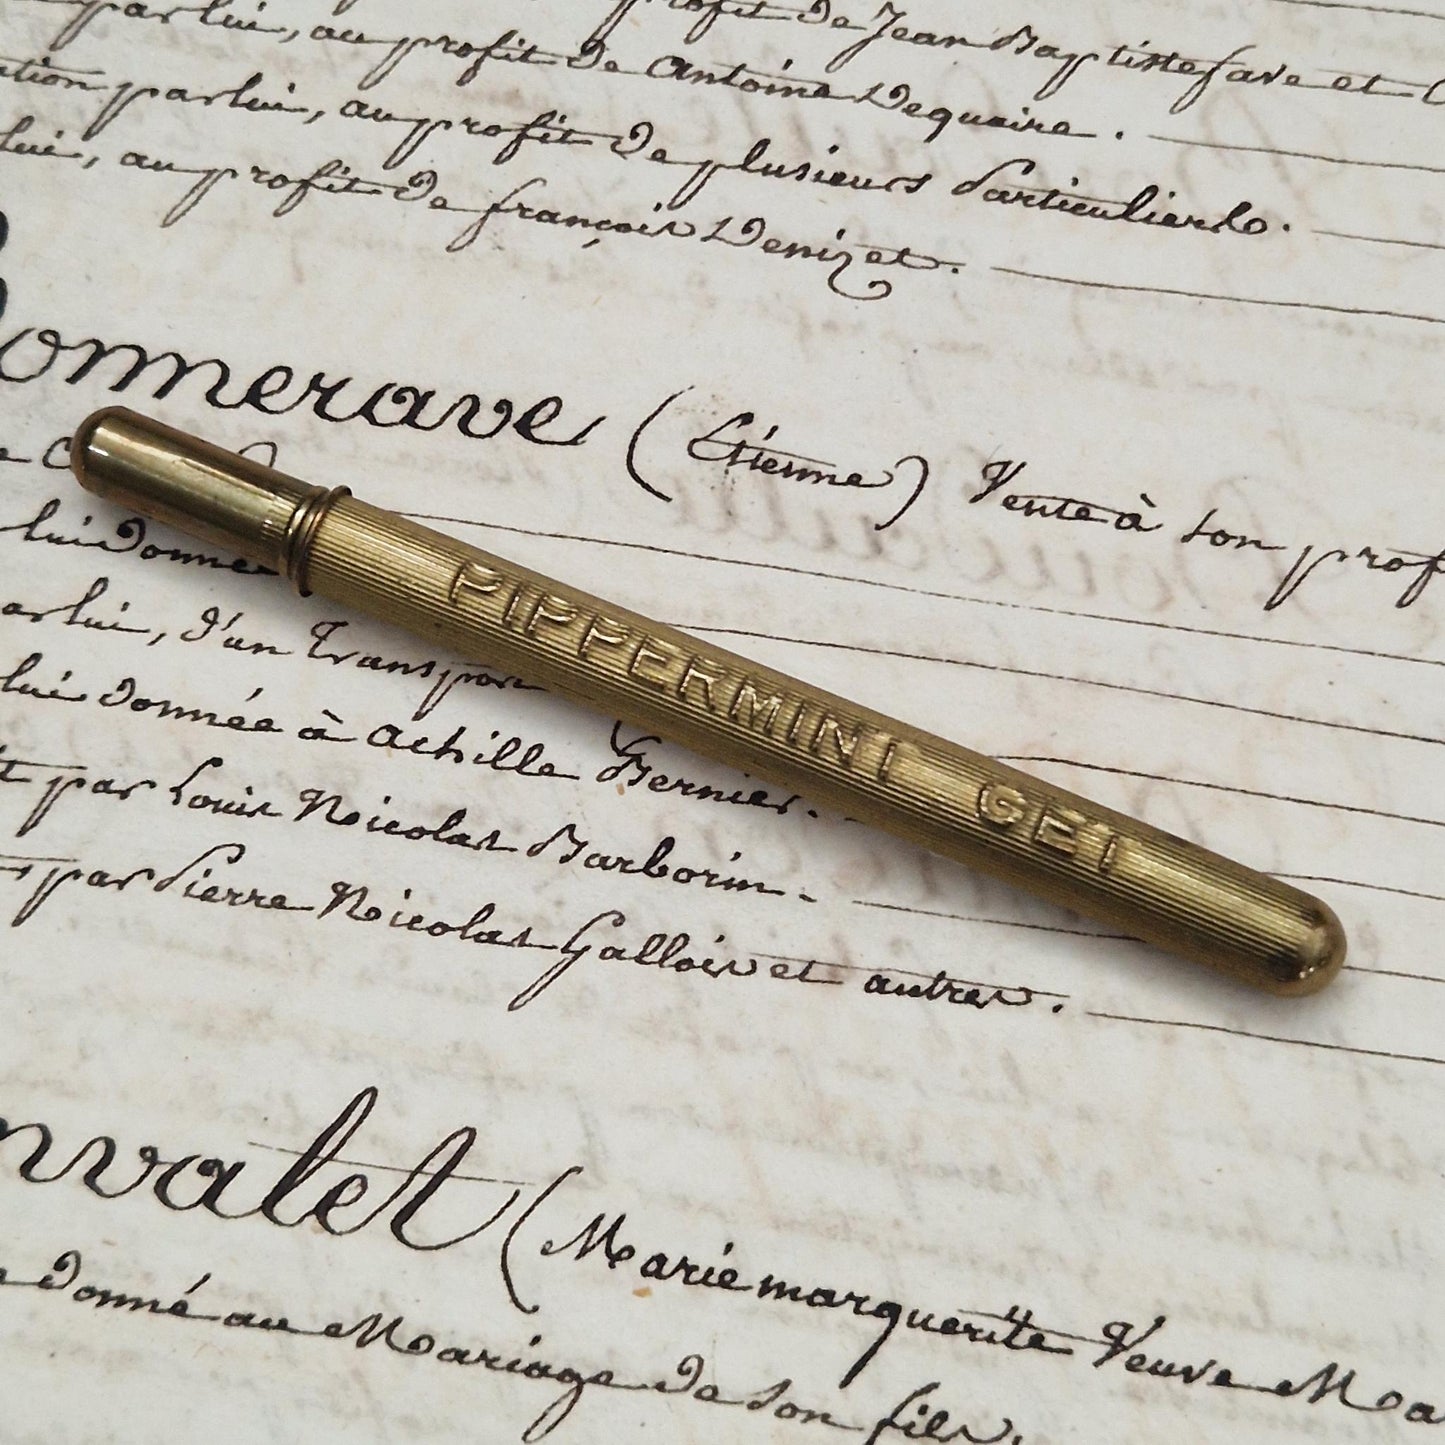 profit de Jean Baptiste fave et
par lui, au profit de Antoine Dequaire.
par lui, au profit de plusieurs Particuliers.
lui, au profit de françois Denizet.
(Etienne) Vente à son
PIPPERMINT GET
lui Donnée
lui, d'un Transport
lui Donnée à Achille Bernier.
par Louis Nicolas Barborin.
par Pierre Nicolas Gallois et autres.
(Marie marguerite Veuve
donné au Mariage de son fils.